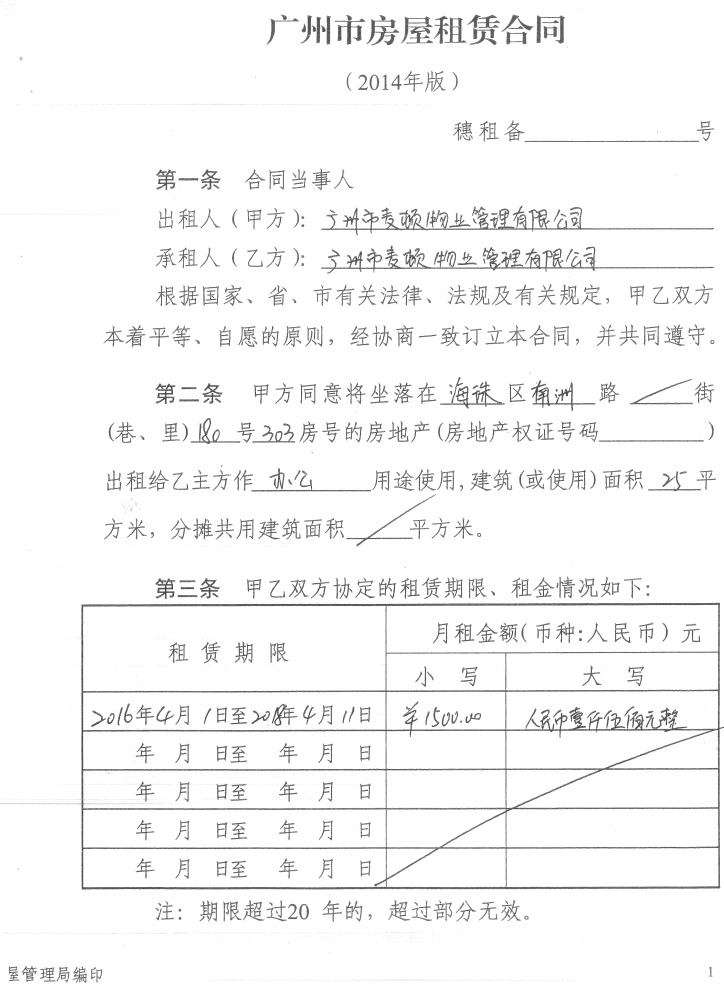 广州市房屋租赁合同
（2014年版）
穗租备____________号
第一条 合同当事人
出租人（甲方）：广州市麦顿物业管理有限公司
承租人（乙方）：广州市麦顿物业管理有限公司
根据国家、省、市有关法律、法规及有关规定，甲乙双方
本着平等、自愿的原则，经协商一致订立本合同，并共同遵守。
第二条 甲方同意将坐落在 海珠 区 南洲 路 ／ 街
(巷、里) 180 号 303 房号的房地产(房地产权证号码________)
出租给乙主方作 办公 用途使用,建筑(或使用)面积 25 平
方米，分摊共用建筑面积 ／ 平方米。
第三条 甲乙双方协定的租赁期限、租金情况如下：
租赁期限 月租金额(币种:人民币) 元
小 写 大 写
2016年4月1日至2018年4月11日 ￥1500.00 人民币壹仟伍佰元整
年 月 日至 年 月 日
年 月 日至 年 月 日
年 月 日至 年 月 日
年 月 日至 年 月 日
注：期限超过20 年的，超过部分无效。
屋管理局编印 1